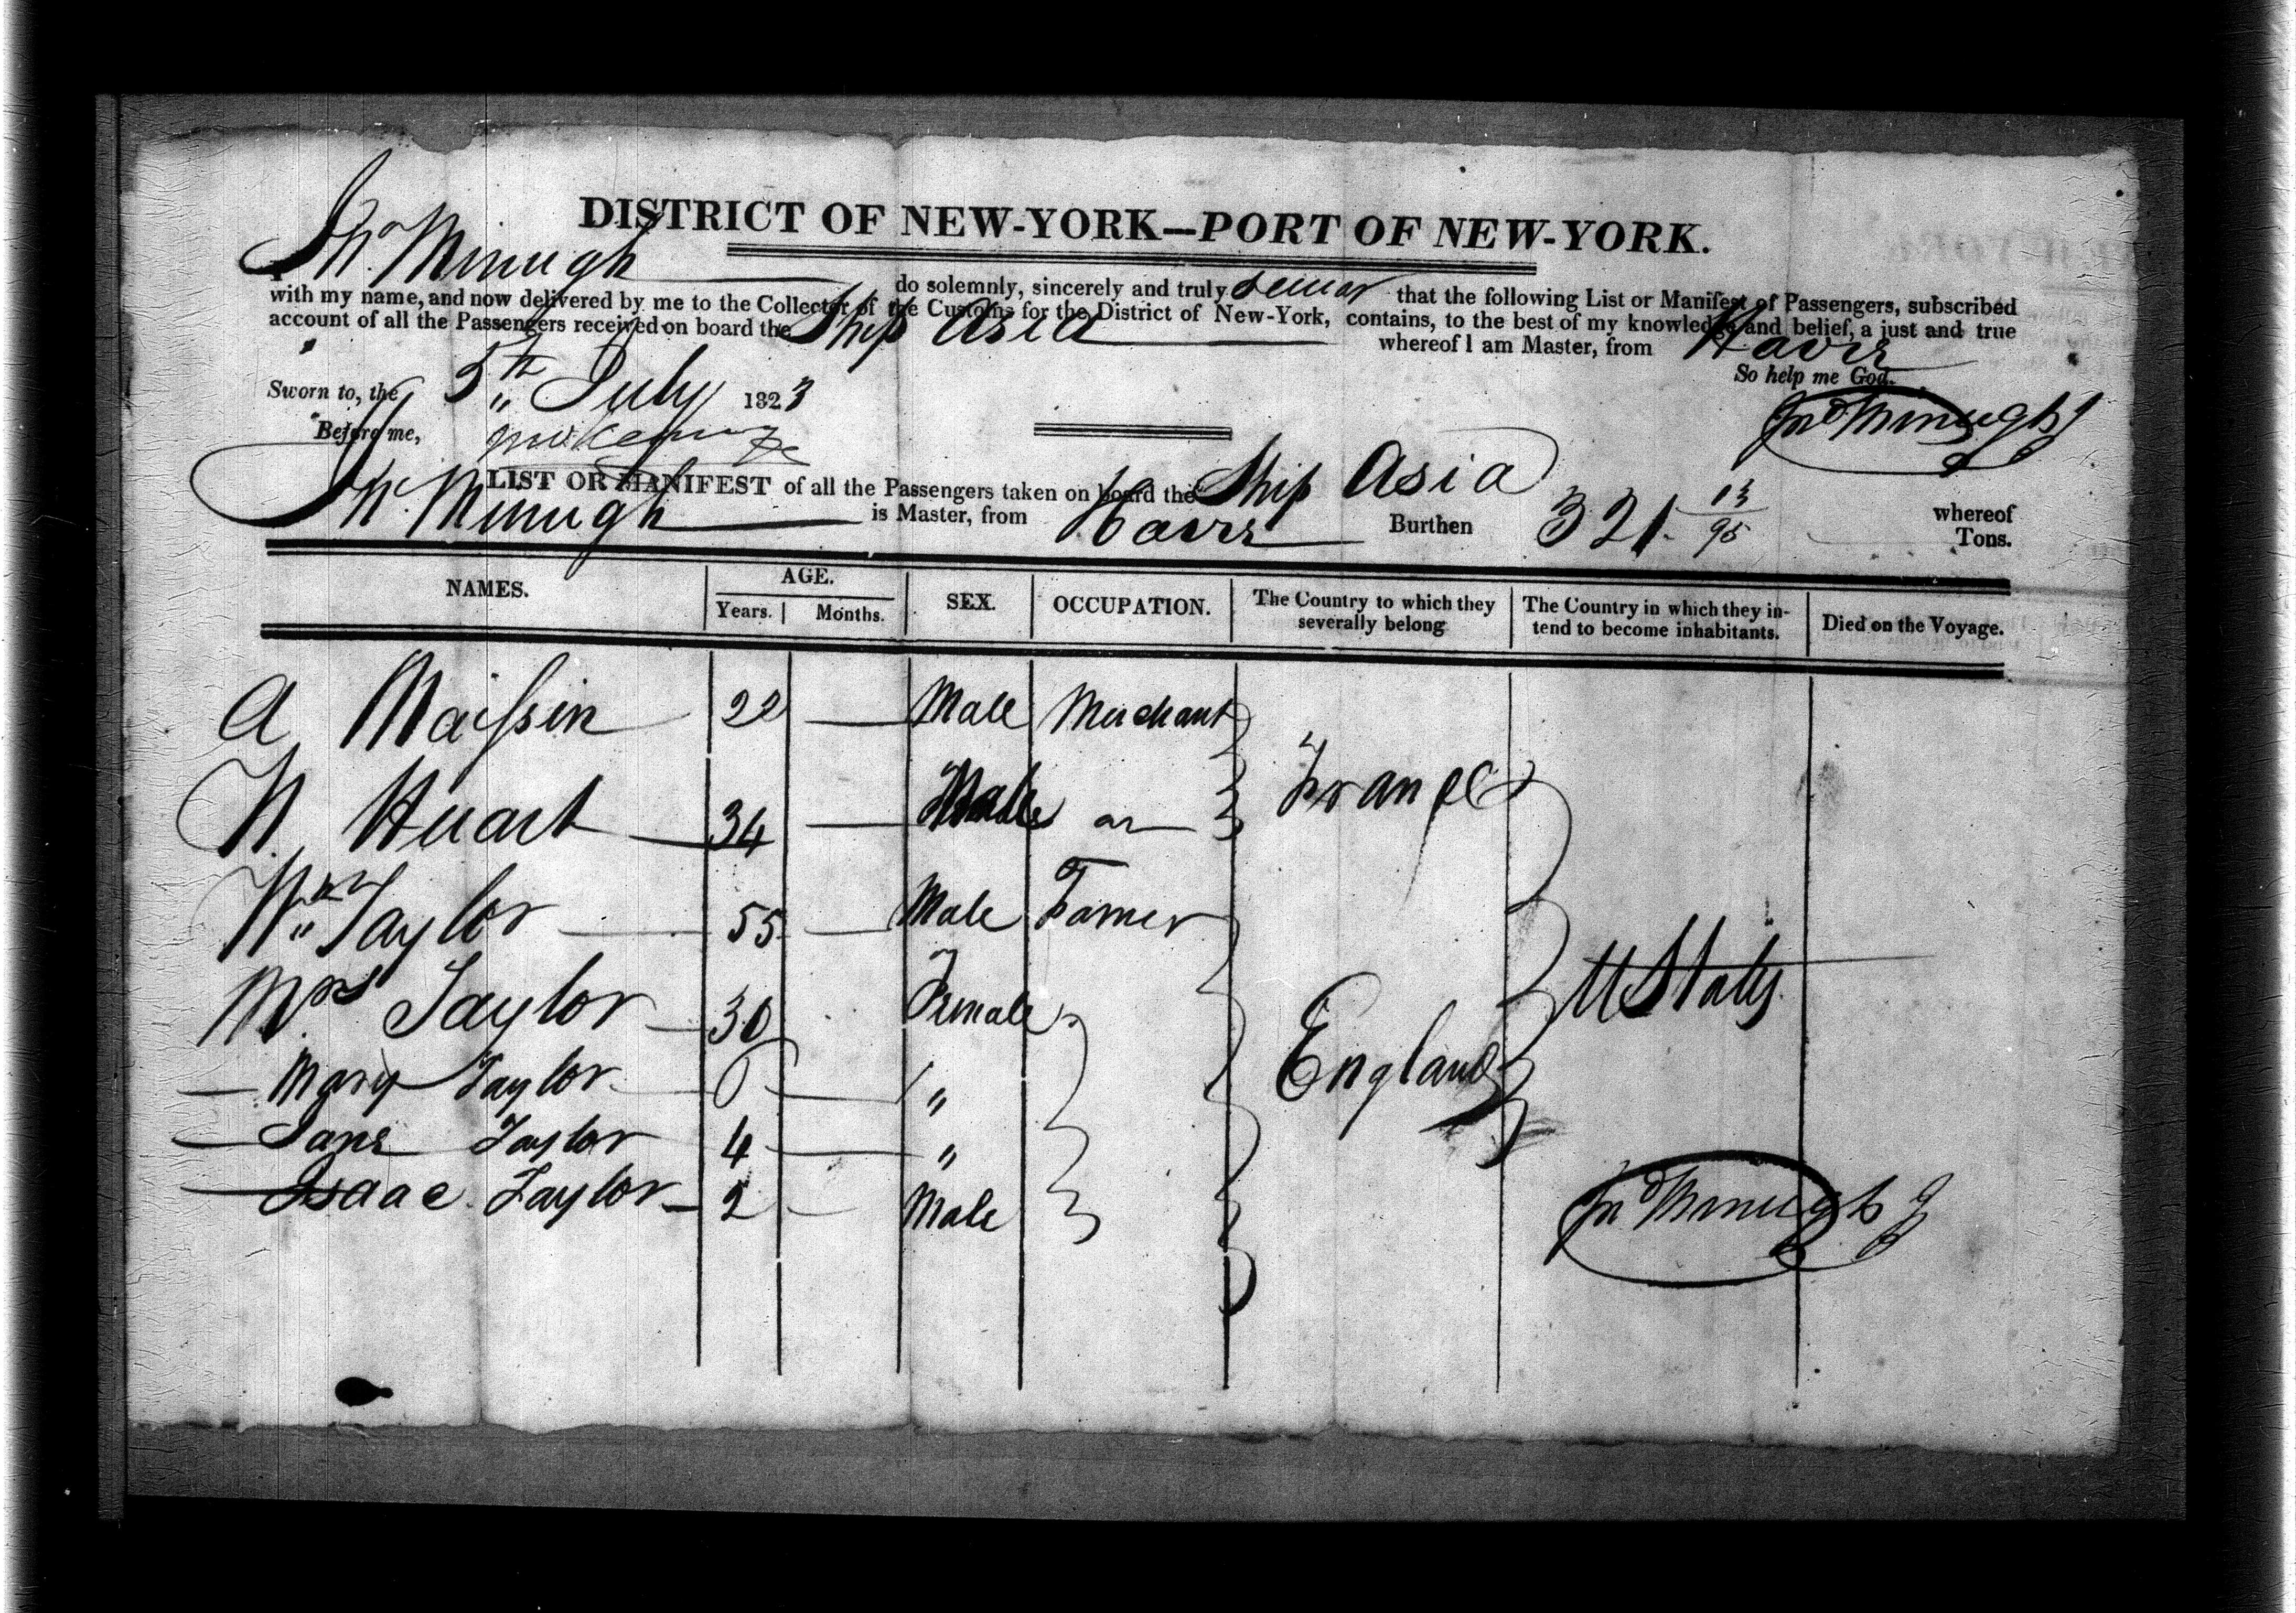 DISTRICT OF NEW-YORK—PORT OF NEW-YORK.
I, Jno. Minugh do solemnly, sincerely and truly swear that the following List or Manifest of Passengers, subscribed
with my name, and now delivered by me to the Collector of the Customs for the District of New-York, contains, to the best of my knowledge and belief, a just and true
account of all the Passengers received on board the Ship Asia whereof I am Master, from Havre
So help me God.
Sworn to, the 5th July 1823
Jno Minugh
Before me,
LIST OR MANIFEST of all the Passengers taken on board the Ship Asia whereof
Jno. Minugh is Master, from Havre Burthen 321 13/95 Tons.
NAMES. AGE. SEX. OCCUPATION. The Country to which they severally belong The Country in which they intend to become inhabitants. Died on the Voyage.
Years. Months.
A Maissin 22 — Male Merchant
France
N. Huart 34 — Male
Wm Taylor 55 — Male Farmer
U States
Mrs Taylor 30 Female
England
— Mary Taylor — "
— Jane Taylor 4 — "
— Isaac Taylor 2 — Male
Jno Minugh